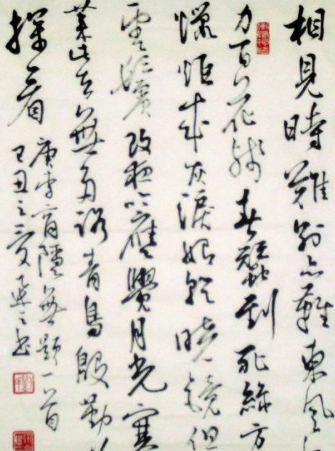 相見時難別亦難東風
力百花殘春蠶到死絲方
蠟炬成灰淚始乾曉鏡但
雲鬢改夜吟應覺月光寒
蓬山此去無多路青鳥殷勤
探看
唐李商隱無題一首
己丑之夏